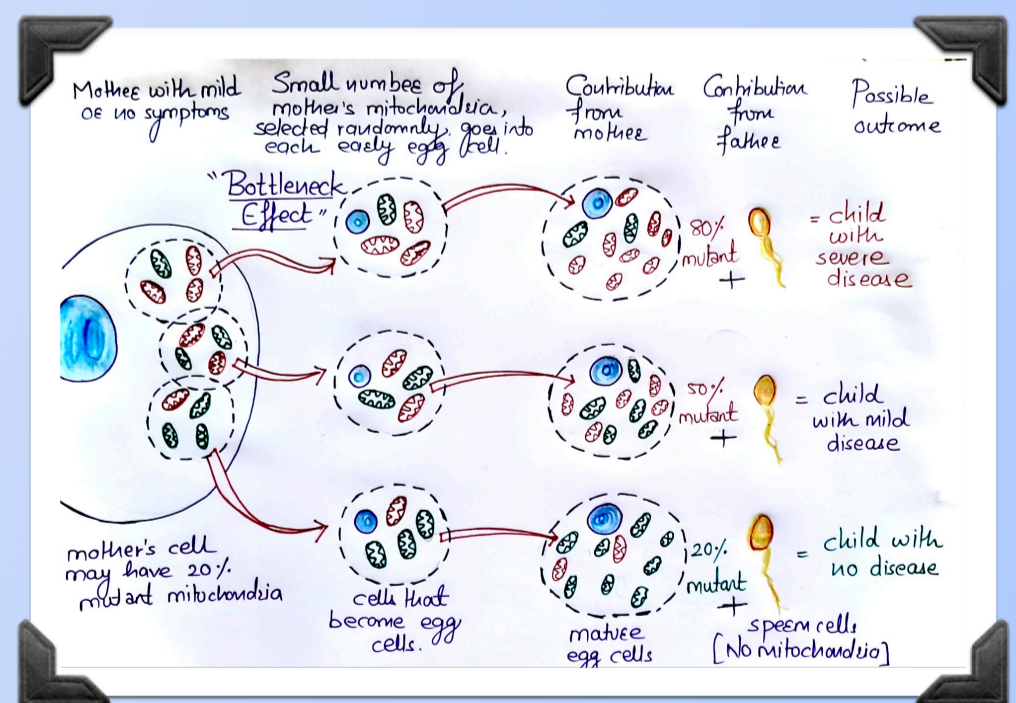 Mother with mild
or no symptoms
Small number of
mother's mitochondria,
selected randomnly, goes into
each early egg cell.
Contribution
from
mother
Contribution
from
father
Possible
outcome
"Bottleneck
Effect"
80%
mutant
+
= child
with
severe
disease
50%
mutant
+
= child
with mild
disease
20%
mutant
+
= child with
no disease
mother's cell
may have 20%
mutant mitochondria
cells that
become egg
cells.
mature
egg cells
sperm cells
[No mitochondria]